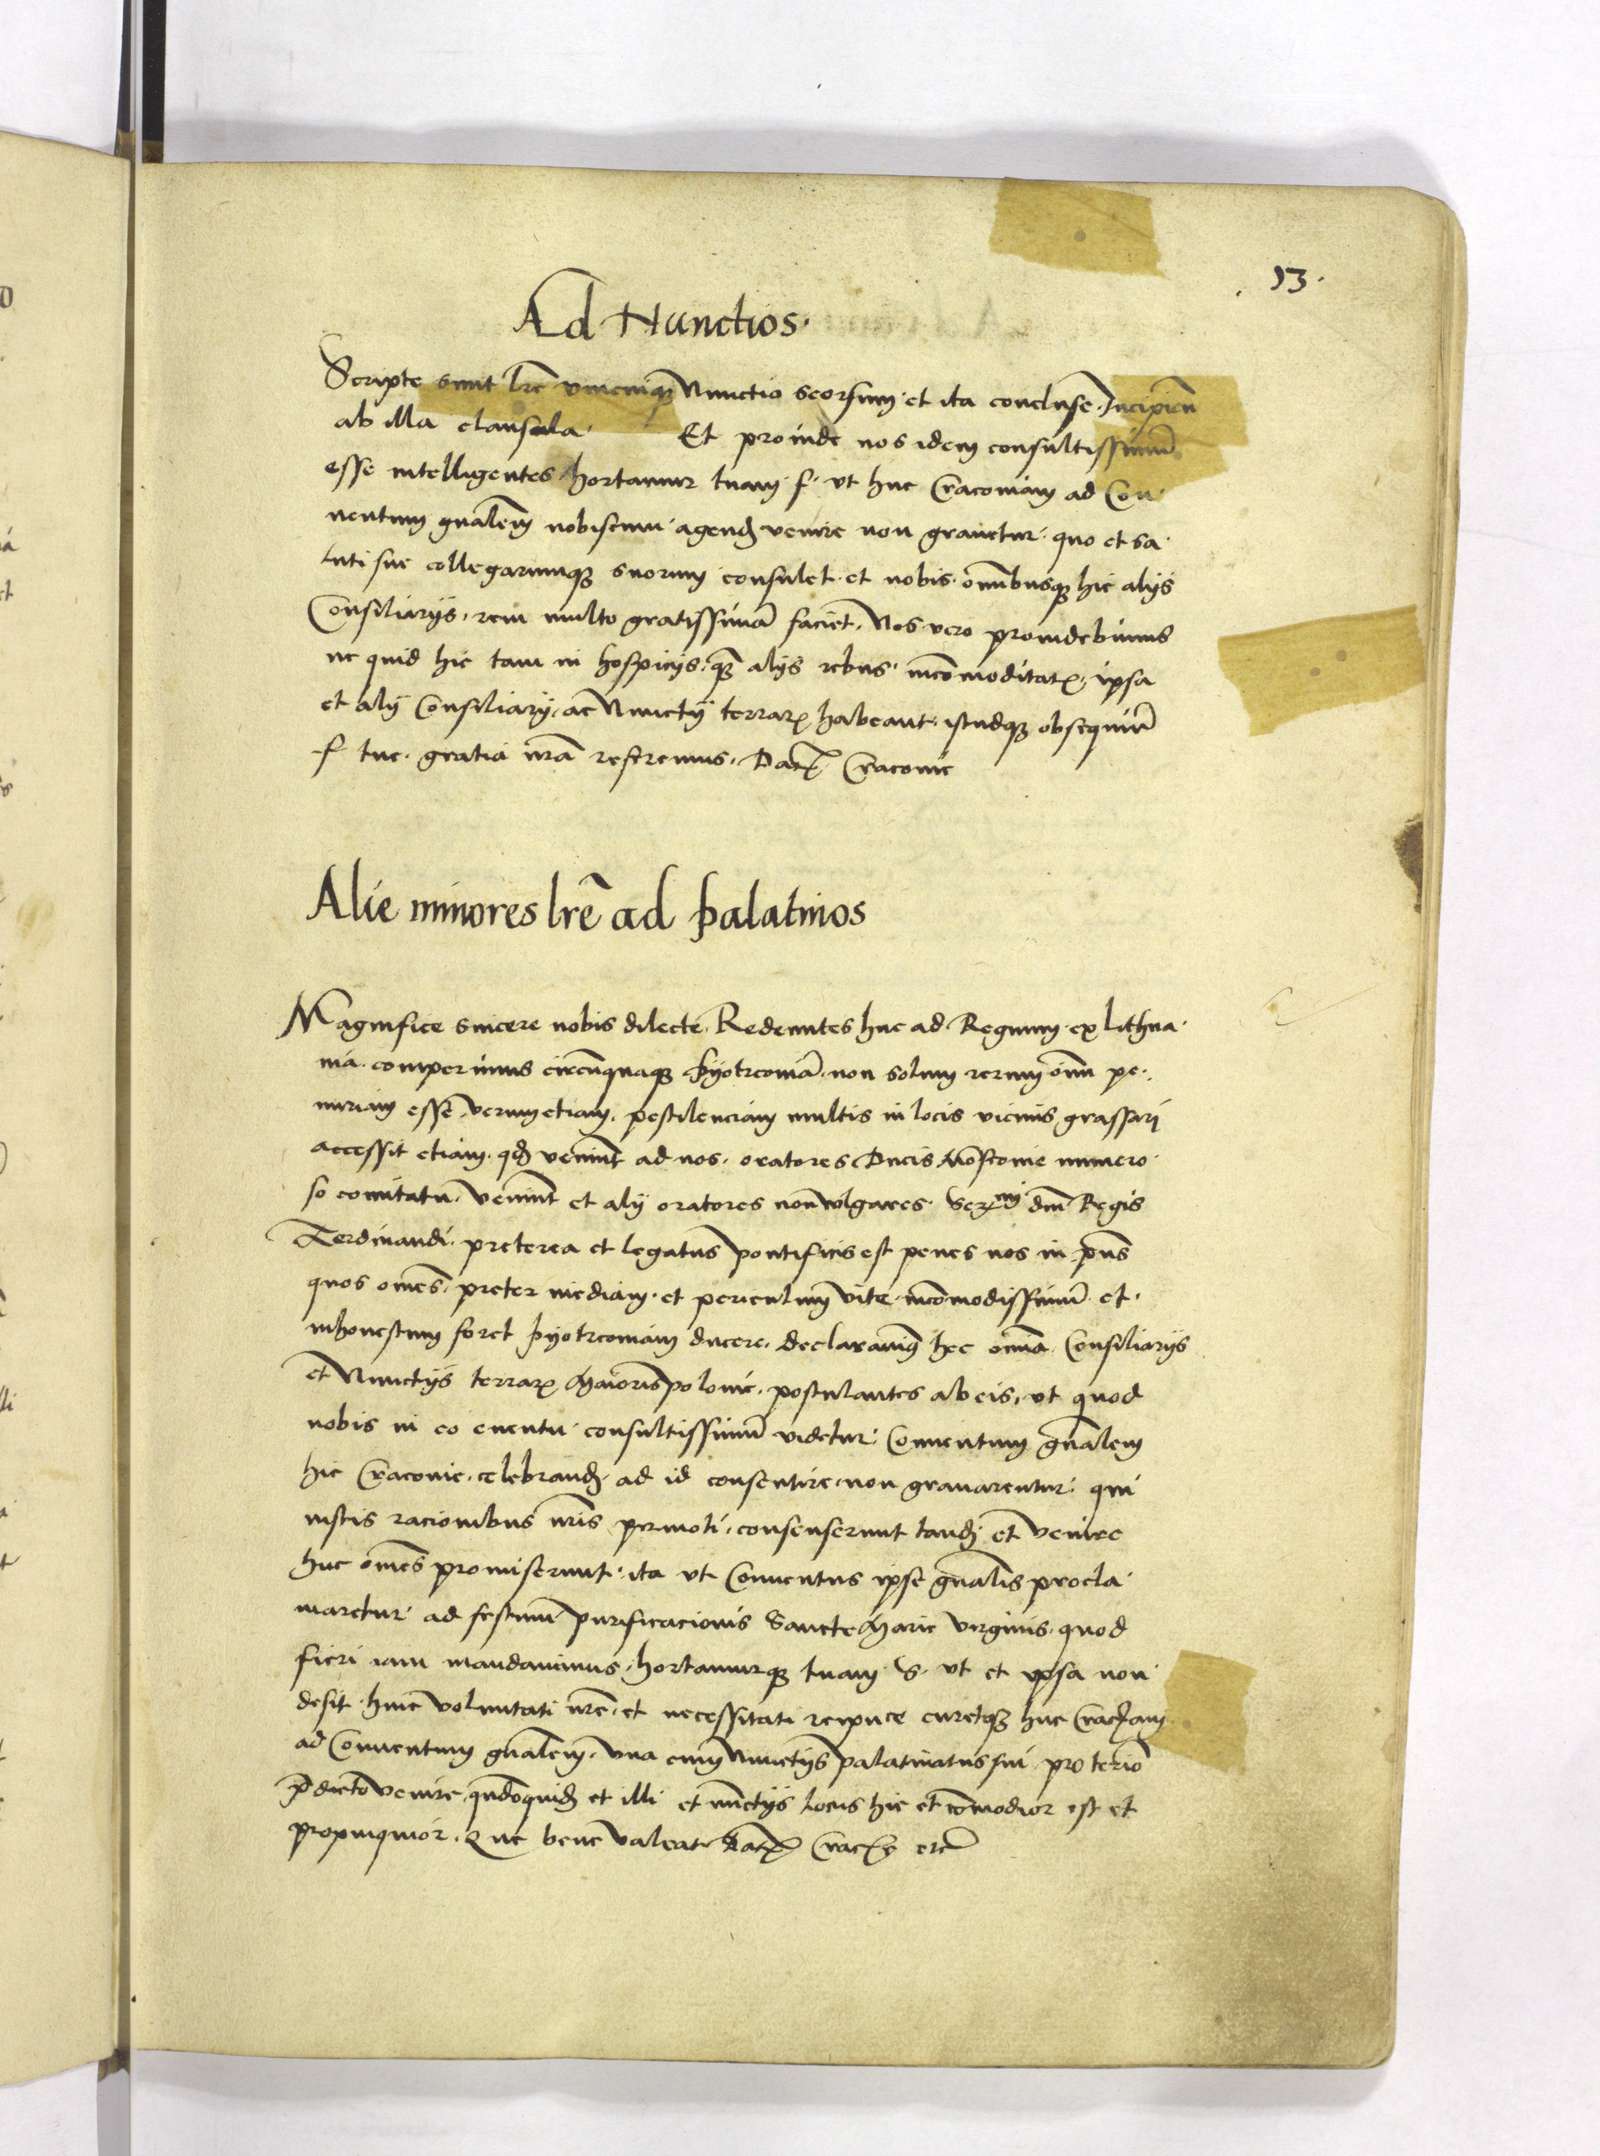 13.
Ad Nunctios.
Scripte sunt lr̄e unicuiqȝ Nunctio seorsum. et ita concluse. Incipien̄
ab illa clausula. Et proinde nos idem consultissimū
esse intelligentes hortamur tuam. f. ut huc Cracoviam ad Con-
ventum gn̄alem nobiscum agend̄ venire non gravetur. quo et sa-
luti sue collegarumqȝ suorum consulet. et nobis. om̄ibusqȝ hic alijs
Consiliarijs. rem multo gratissimā faciet. Nos vero providebimus
ne quid hic tam in hospicijs. qȝ alijs rebus. incōmoditatꝭ. ipsa
et alij Consiliarij. ac Nunctij terrarꝝ habeant. istudqȝ obsequiū
f. tue. gratia nr̄a referemus. Datꝭ Cracovie
Alie minores lr̄e ad palatinos
Magnifice sincere nobis dilecte. Redeuntes huc ad Regnum ex Lithua-
nia. comperimus circūquaqȝ Pyotrcoviā. non solum rerum om̄iū pe-
nuriam esse verumetiam. pestilenciam multis in locis vicinis grassari
accessit etiam. qd̄ veniūt ad nos. oratores Ducis Moscovie numero-
so comitatu. veniūt et alij oratores non vulgares. Serᵐⁱ dn̄i Regis
Ferdinandi. preterea et legatus pontificis est penes nos in pn̄s
quos om̄es. preter inediam. et periculum vite. incōmodissimū et.
inhonestum foret Pyotrcoviam ducere. declaravimꝰ hec om̄ia Consiliarijs
et Nunctijs terrarꝝ Maioris polonie. postulantes ab eis. ut quod
nobis in eo eventu consultissimū videtur. Conventum gn̄alem
hic Cracovie. celebrand̄. ad id consentire. non gravarentur. qui
iustis racionibus nr̄is permoti. consenserunt tand̄ et venire
huc om̄es promiserunt. ita ut Conventus ipse gn̄alis procla-
maretur ad festum purificacionis Sancte Marie virginis. quod
fieri iam mandavimus. hortamurqȝ tuam. S. ut et ipsa non
desit. huic voluntati nr̄e. et necessitati reipuce curetqȝ huc Cracꝭam
ad Conventum gn̄alem. una cum Nunctijs palatinatus sui. pro termīo
p̄dicto venire. qn̄doquid̄ et illi et nūctijs locus hic et cōmodior est et
propinquior. Que bene valeat. Datꝭ Cracꝭe etc̄